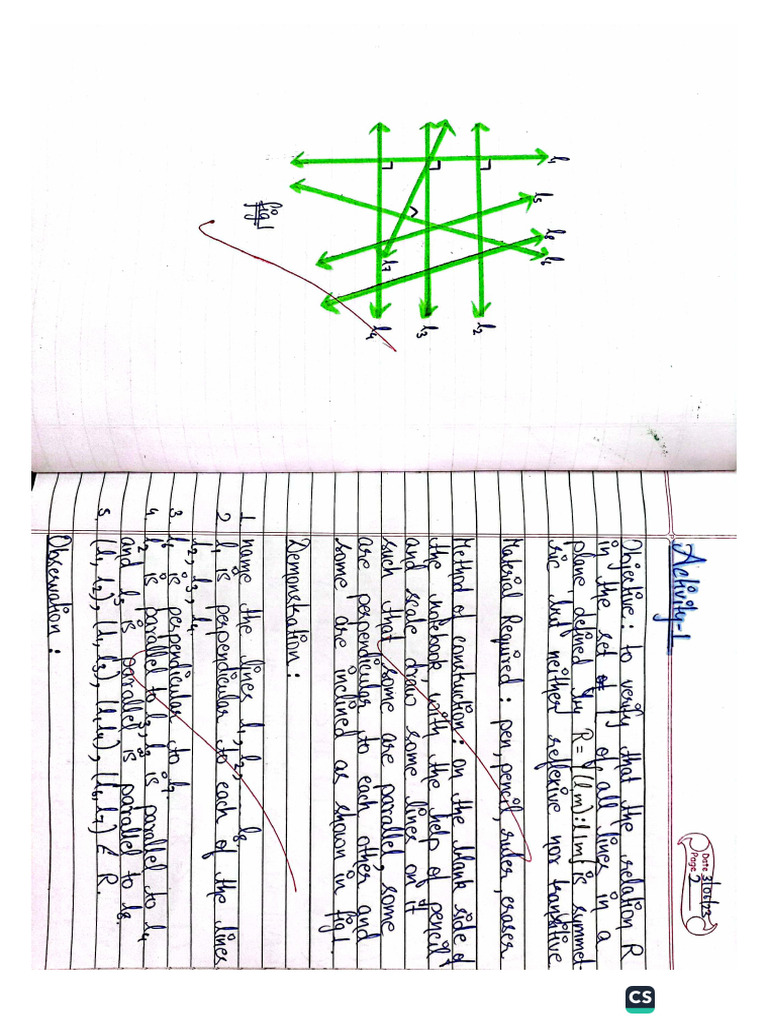 Date 3/06/23
Page 2
Activity-1
Objective: to verify that the relation R
in the set of all lines in a
plane, defined by R={(l,m):l⊥m} is symmet-
ric but neither reflexive nor transitive
Material Required: pen, pencil, ruler, eraser
Method of construction: on the blank side of
the notebook, with the help of pencil &
and scale, draw some lines on it
such that some are parallel, some
are perpendicular to each other and
some are inclined as shown in fig1.
Demonstration:
1. name the lines l1, l2, ___ l8
2 l1 is perpendicular to each of the lines
l2, l3, l4.
3. l6 is perpendicular to l7.
4. l2 is parallel to l3, l3 is parallel to l4
and l5 is parallel is parallel to l8.
5. (l1, l2), (l1, l3), (l1, l4), (l6, l7) ∈ R.
Observation:
l1
l5
l8
l6
l7
l2
l3
l4
fig1
CS